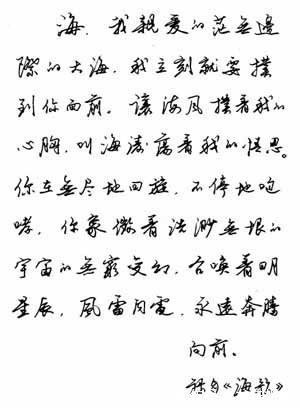 海，我親愛的茫無邊
際的大海，我立刻就要撲
到你面前。讓海風撲着我的
心胸，叫海濤 着我的 思。
你在無尽地回旋，不停地咆
哮，你象徵着洪渺無垠的
宇宙的無窮变幻，召唤着明
星辰，風雷闪電，永遠奔騰
向前。
 《海 》